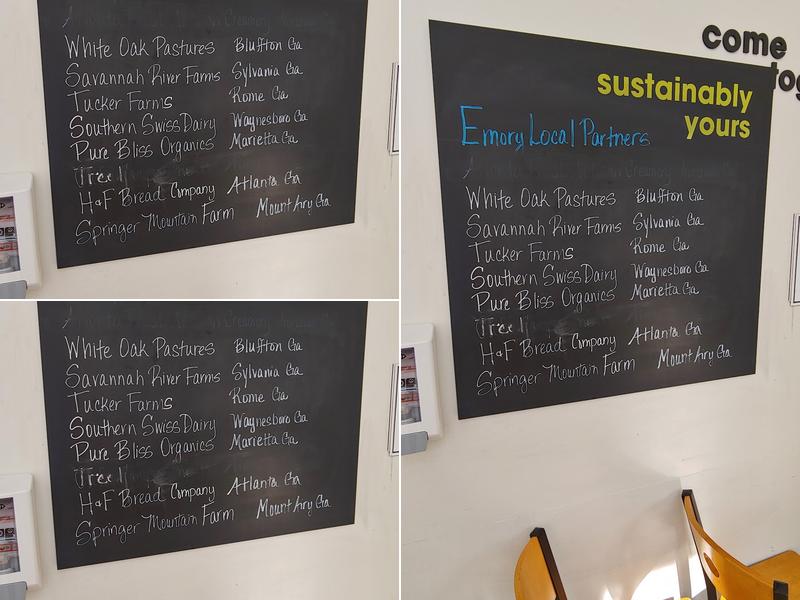 White Oak Pastures Bluffton Ga
Savannah River Farms Sylvania Ga
Tucker Farms Rome Ga
Southern Swiss Dairy Waynesboro Ga
Pure Bliss Organics Marietta Ga
H&F Bread Company Atlanta Ga
Springer Mountain Farm Mount Airy Ga
come
tog
sustainably
yours
Emory Local Partners
White Oak Pastures Bluffton Ga
Savannah River Farms Sylvania Ga
Tucker Farms Rome Ga
Southern Swiss Dairy Waynesboro Ga
Pure Bliss Organics Marietta Ga
H&F Bread Company Atlanta Ga
Springer Mountain Farm Mount Airy Ga
White Oak Pastures Bluffton Ga
Savannah River Farms Sylvania Ga
Tucker Farms Rome Ga
Southern Swiss Dairy Waynesboro Ga
Pure Bliss Organics Marietta Ga
H&F Bread Company Atlanta Ga
Springer Mountain Farm Mount Airy Ga